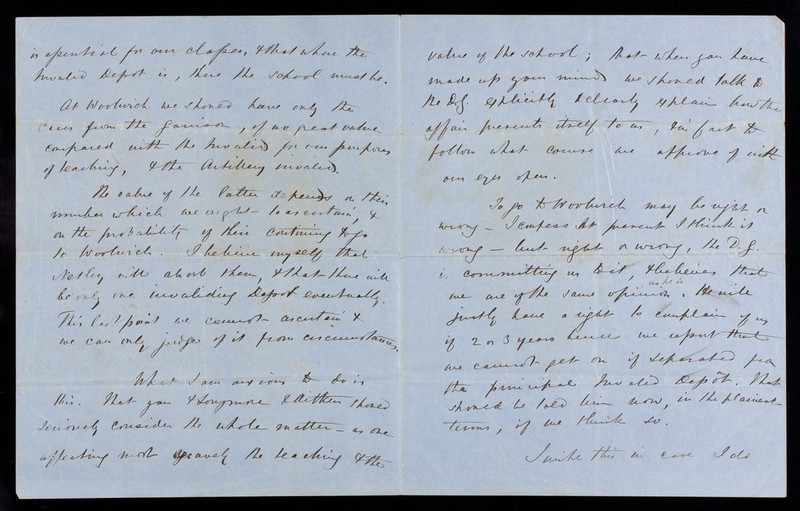 is essential for our classes, & that where the
Invalid Depot is, there the school must be.
At Woolwich we should have only the
cases from the Garrison, of no great value
compared with the Invalids for our purposes
of teaching, & the Artillery invalids.
The value of the latter depends on their
number which we ought to ascertain, &
on the probability of their continuing to go
to Woolwich. I believe myself that
Netley will absorb them, & that there will
be only one invaliding Depot eventually.
This last point we cannot ascertain &
we can only judge of it from circumstances.
What I am anxious to do is
this. That you & Longmore & Aitken should
seriously consider the whole matter – as one
affecting most gravely the teaching & the
value of the school; that when you have
made up your minds we should talk to
the D.G. explicitly & clearly explain how the
affair presents itself to us, & in fact to
follow what course we approve of with
our eyes open.
To go to Woolwich may be right or
wrong – I confess at present I think it
wrong – but right or wrong, the D.G.
is committing us to it, & believes that
we are of the same opinion as he is. He will
justly have a right to complain of us
if 2 or 3 years hence we report that
we cannot get on if separated from
the principal Invalid Depôt. That
should be told him now, in the plainest
terms, if we think so.
I write this in case I do